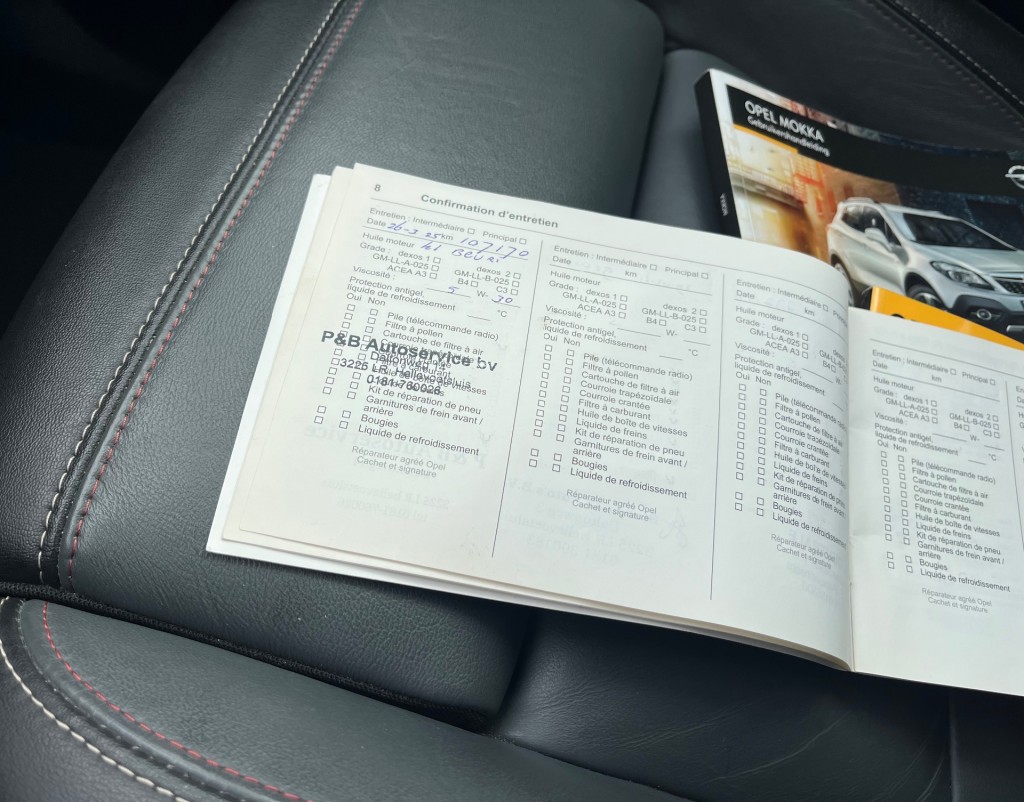 OPEL MOKKA
Gebruikershandleiding
MOKKA
8 Confirmation d'entretien
Entretien : Intermédiaire □ Principal □
Date 26-3 25 km 107170
Huile moteur
Grade : dexos 1 □ dexos 2 □
GM-LL-A-025 □ GM-LL-B-025 □
ACEA A3 □ B4 □ C3 □
Viscosité : 5 W- 30
Protection antigel,
liquide de refroidissement °C
Oui Non
□ □ Pile (télécommande radio)
□ □ Filtre à pollen
Cartouche de filtre à air
P&B Autoservice bv
3225 LR Hellevoetsluis
0181-760026
□ □ Kit de réparation de pneu
□ □ Garnitures de frein avant /
arrière
□ □ Bougies
□ □ Liquide de refroidissement
Réparateur agréé Opel
Cachet et signature
Entretien : Intermédiaire □ Principal □
Date km
Huile moteur
Grade : dexos 1 □ dexos 2 □
GM-LL-A-025 □ GM-LL-B-025 □
ACEA A3 □ B4 □ C3 □
Viscosité : W-
Protection antigel,
liquide de refroidissement °C
Oui Non
□ □ Pile (télécommande radio)
□ □ Filtre à pollen
□ □ Cartouche de filtre à air
□ □ Courroie trapézoïdale
□ □ Courroie crantée
□ □ Filtre à carburant
□ □ Huile de boîte de vitesses
□ □ Liquide de freins
□ □ Kit de réparation de pneu
□ □ Garnitures de frein avant /
arrière
□ □ Bougies
□ □ Liquide de refroidissement
Réparateur agréé Opel
Cachet et signature
Entretien : Intermédiaire □
Date km
Huile moteur
Grade : dexos 1 □
GM-LL-A-025 □
ACEA A3 □
Viscosité :
Protection antigel,
liquide de refroidissement
Oui Non
□ □ Pile (télécommande
□ □ Filtre à pollen
□ □ Cartouche de filtre à
□ □ Courroie trapézoïdale
□ □ Courroie crantée
□ □ Filtre à carburant
□ □ Huile de boîte de
□ □ Liquide de freins
□ □ Kit de réparation de
□ □ Garnitures de frein avant
arrière
□ □ Bougies
□ □ Liquide de refroidissement
Réparateur agréé Opel
Cachet et signature
Entretien : Intermédiaire □ Principal □
Date km
Huile moteur
Grade : dexos 1 □ dexos 2 □
GM-LL-A-025 □ GM-LL-B-025 □
ACEA A3 □ B4 □ C3 □
Viscosité : W-
Protection antigel,
liquide de refroidissement °C
Oui Non
□ □ Pile (télécommande radio)
□ □ Filtre à pollen
□ □ Cartouche de filtre à air
□ □ Courroie trapézoïdale
□ □ Courroie crantée
□ □ Filtre à carburant
□ □ Huile de boîte de vitesses
□ □ Liquide de freins
□ □ Kit de réparation de pneu
□ □ Garnitures de frein avant /
arrière
□ □ Bougies
□ □ Liquide de refroidissement
Réparateur agréé Opel
Cachet et signature